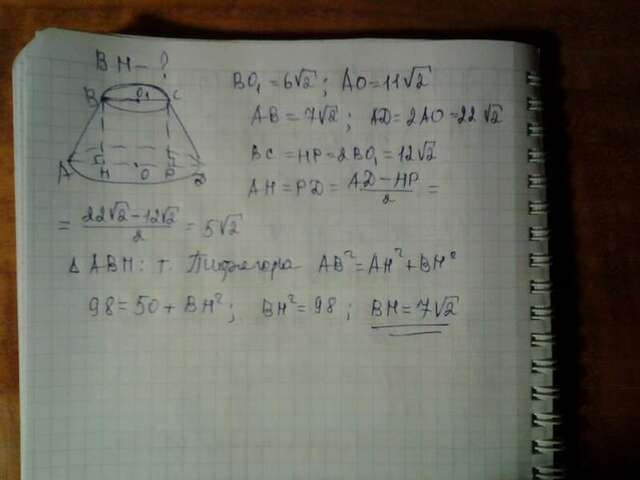 BH - ?
B O₁ C
A H O P D
BO₁ = 6√2 ; AO = 11√2
AB = 7√2 ; AD = 2AO = 22√2
BC = HP = 2BO₁ = 12√2
AH = PD = (AD - HP)/2 =
= (22√2 - 12√2)/2 = 5√2
Δ ABH: т. Пифагора AB² = AH² + BH²
98 = 50 + BH² ; BH² = 98 ; BH = 7√2